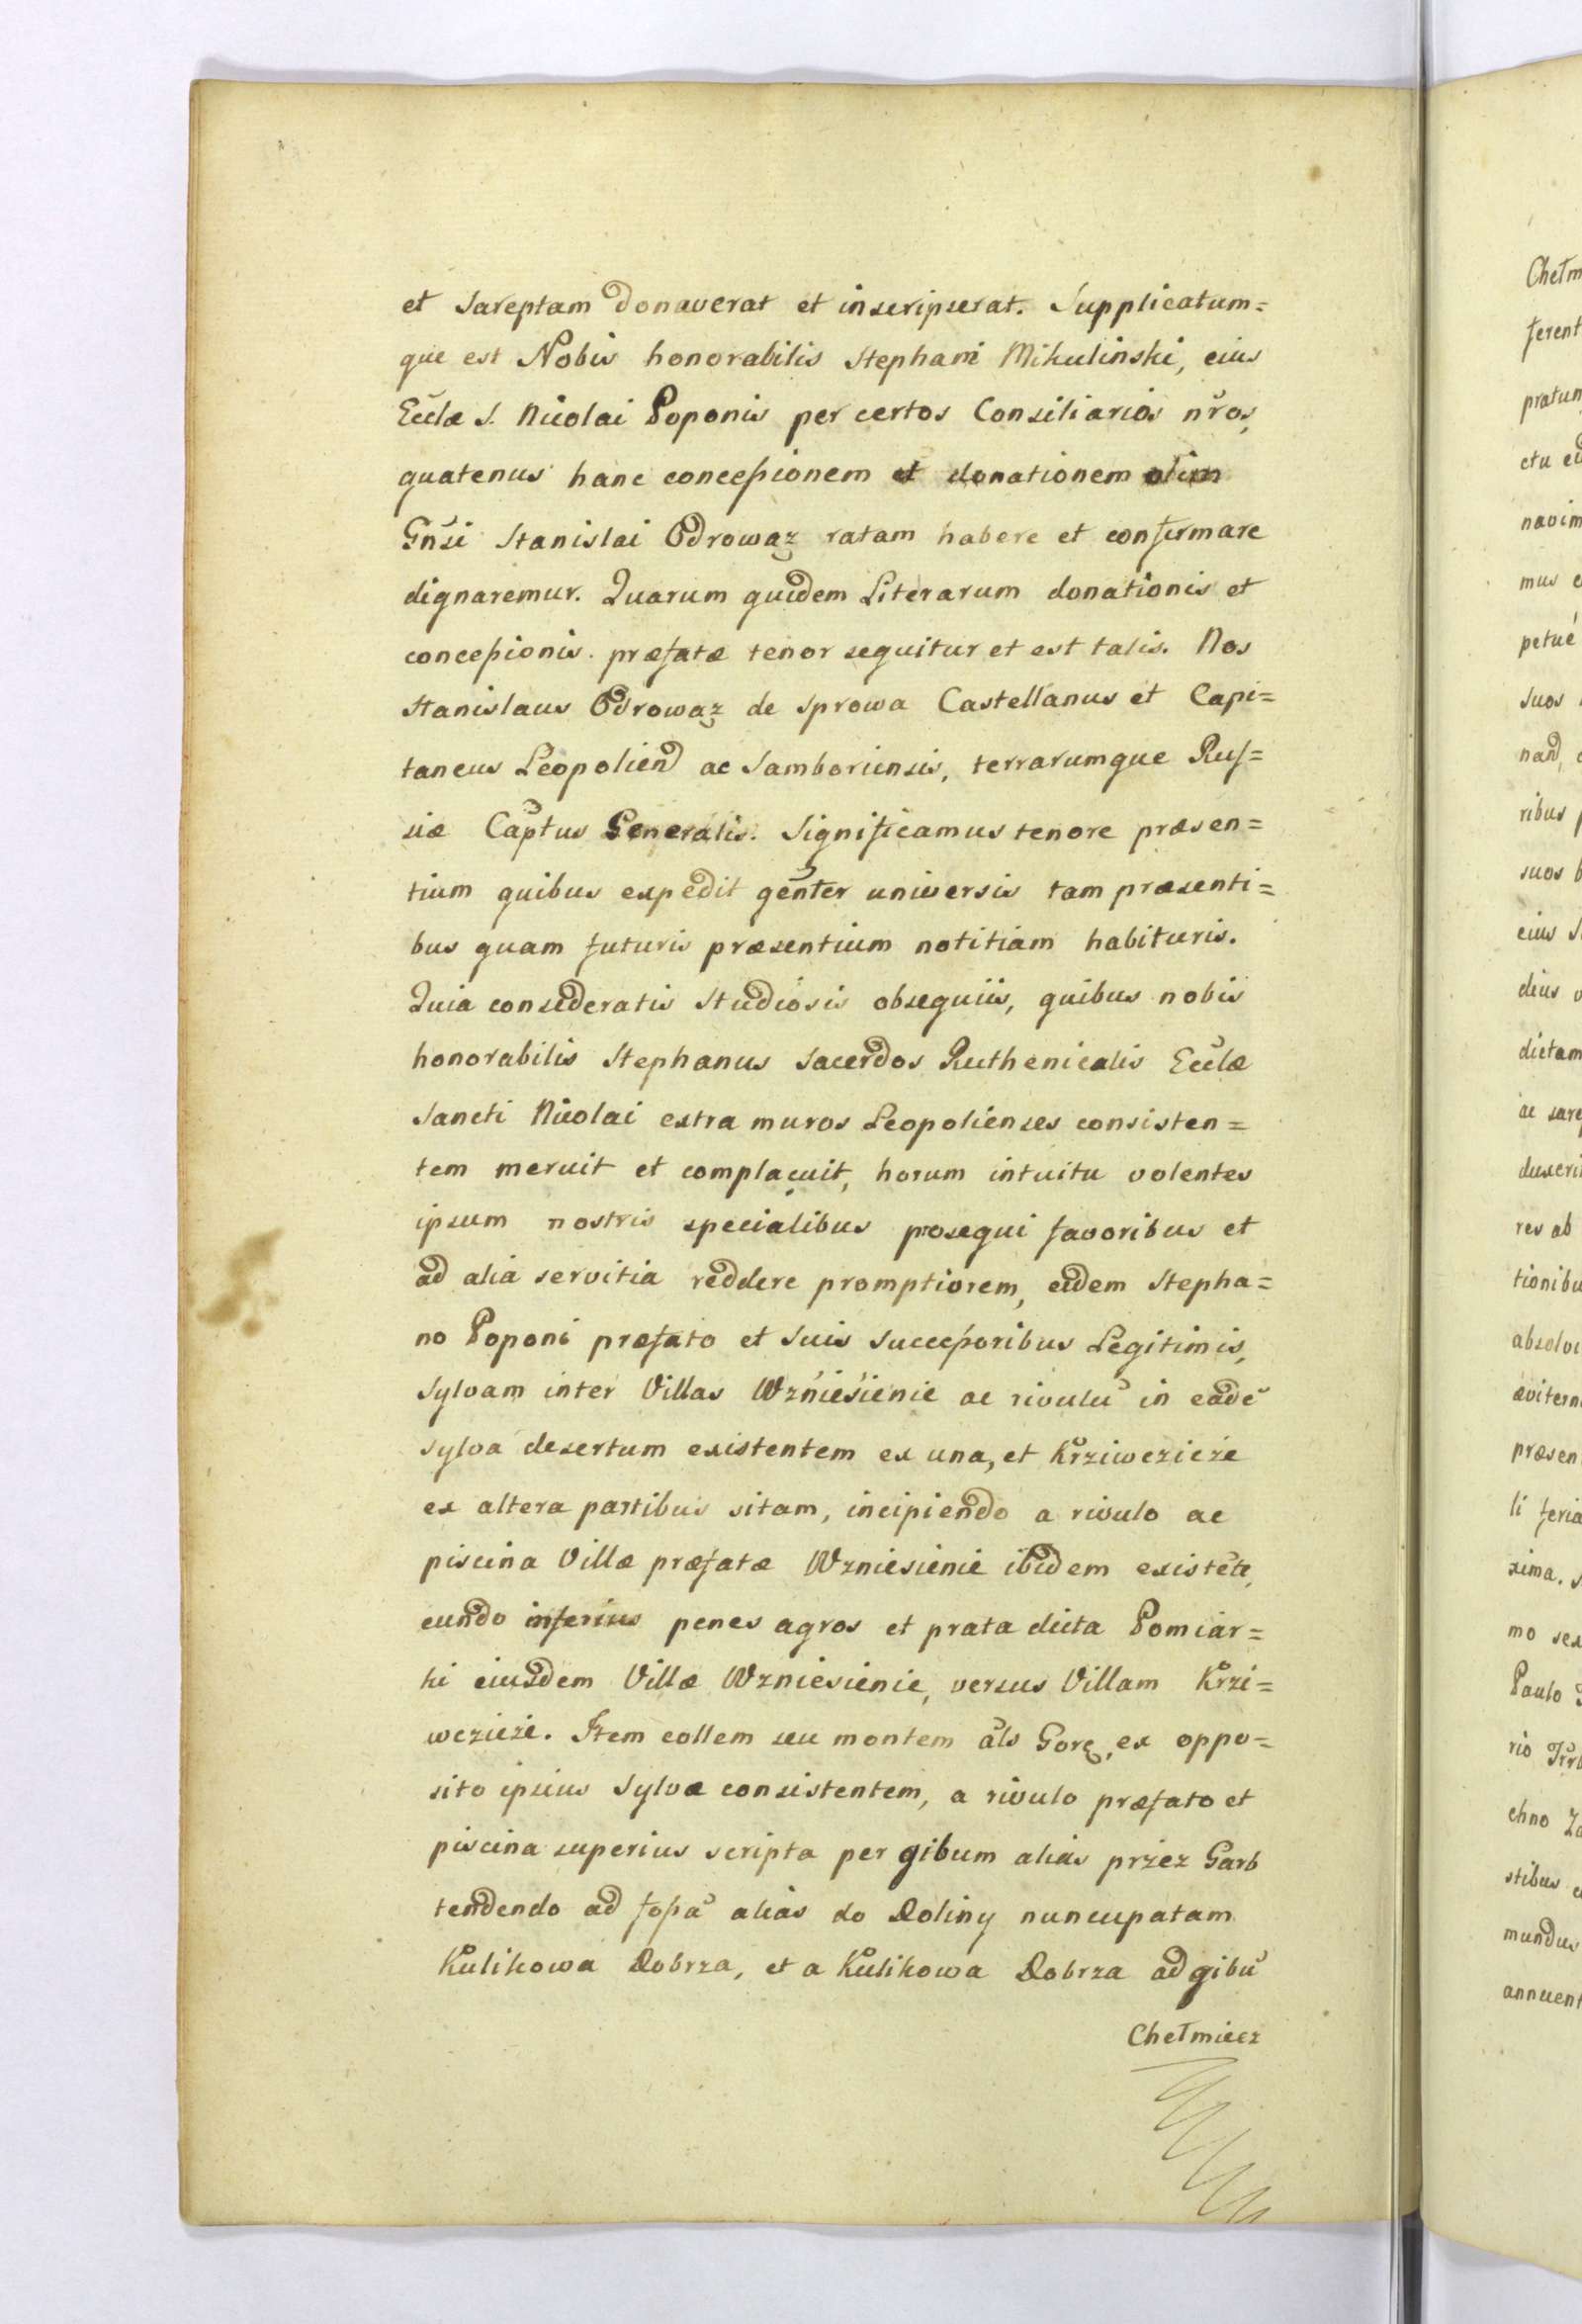 et sareptam donaverat et inscripserat. Supplicatum=
que est Nobis honorabilis Stephani Mikulinski, eius
Eccłæ S. Nicolai Poponis per certos Consiliarios nr̃os,
quatenus hanc conceſsionem et donationem olim
Gñsi Stanislai Odrowąz ratam habere et confirmare
dignaremur. Quarum quidem Literarum donationis et
conceſsionis præfatæ tenor sequitur et est talis. Nos
Stanislaus Odrowąz de Sprowa Castellanus et Capi=
taneus Leopolien̄ ac Samboriensis, terrarumque Ruſ=
siæ Capt̃us Generalis. Significamus tenore præsen=
tium quibus expedit gen̄ter universis tam præsenti=
bus quam futuris præsentium notitiam habituris.
Quia consideratis studiosis obsequiis, quibus nobis
honorabilis Stephanus Sacerdos Ruthenicalis Eccłæ
Sancti Nicolai extra muros Leopolienses consisten=
tem meruit et complacuit, horum intuitu volentes
ipsum nostris specialibus prosequi favoribus et
ad alia servitia reddere promptiorem, eidem Stepha=
no Poponi præfato et suis succeſsoribus Legitimis,
Sylvam inter Villas Wzniesienie ac rivulū in eadē
sylva desertum existentem ex una, et Krziwezieże
ex altera partibus sitam, incipiendo a rivulo ac
piscina Villæ præfatæ Wzniesienie ibidem existēte,
eundo inferius penes agros et prata dicta Pomiar=
ki eiusdem Villæ Wzniesienie, versus Villam Krzi=
wezieże. Item collem seu montem als̃ Gorę, ex oppo=
sito ipsius Sylvæ consistentem, a rivulo præfato et
piscina superius scripta per gibum alias przez Garb
tendendo ad foſsā alias do Doliny nuncupatam
Kulikowa Dobrza, et a Kulikowa Dobrza ad gibū
Chełmiecz
Chełm
ferent
pratum
navim
mus
petuè
suos
ribus
suos
eius
dictam
res ab
tionibu
absolvi
æviterni
præsen
li feria
xima.
mo sex
Paulo
rio
chno
stibus
mundus
annuent